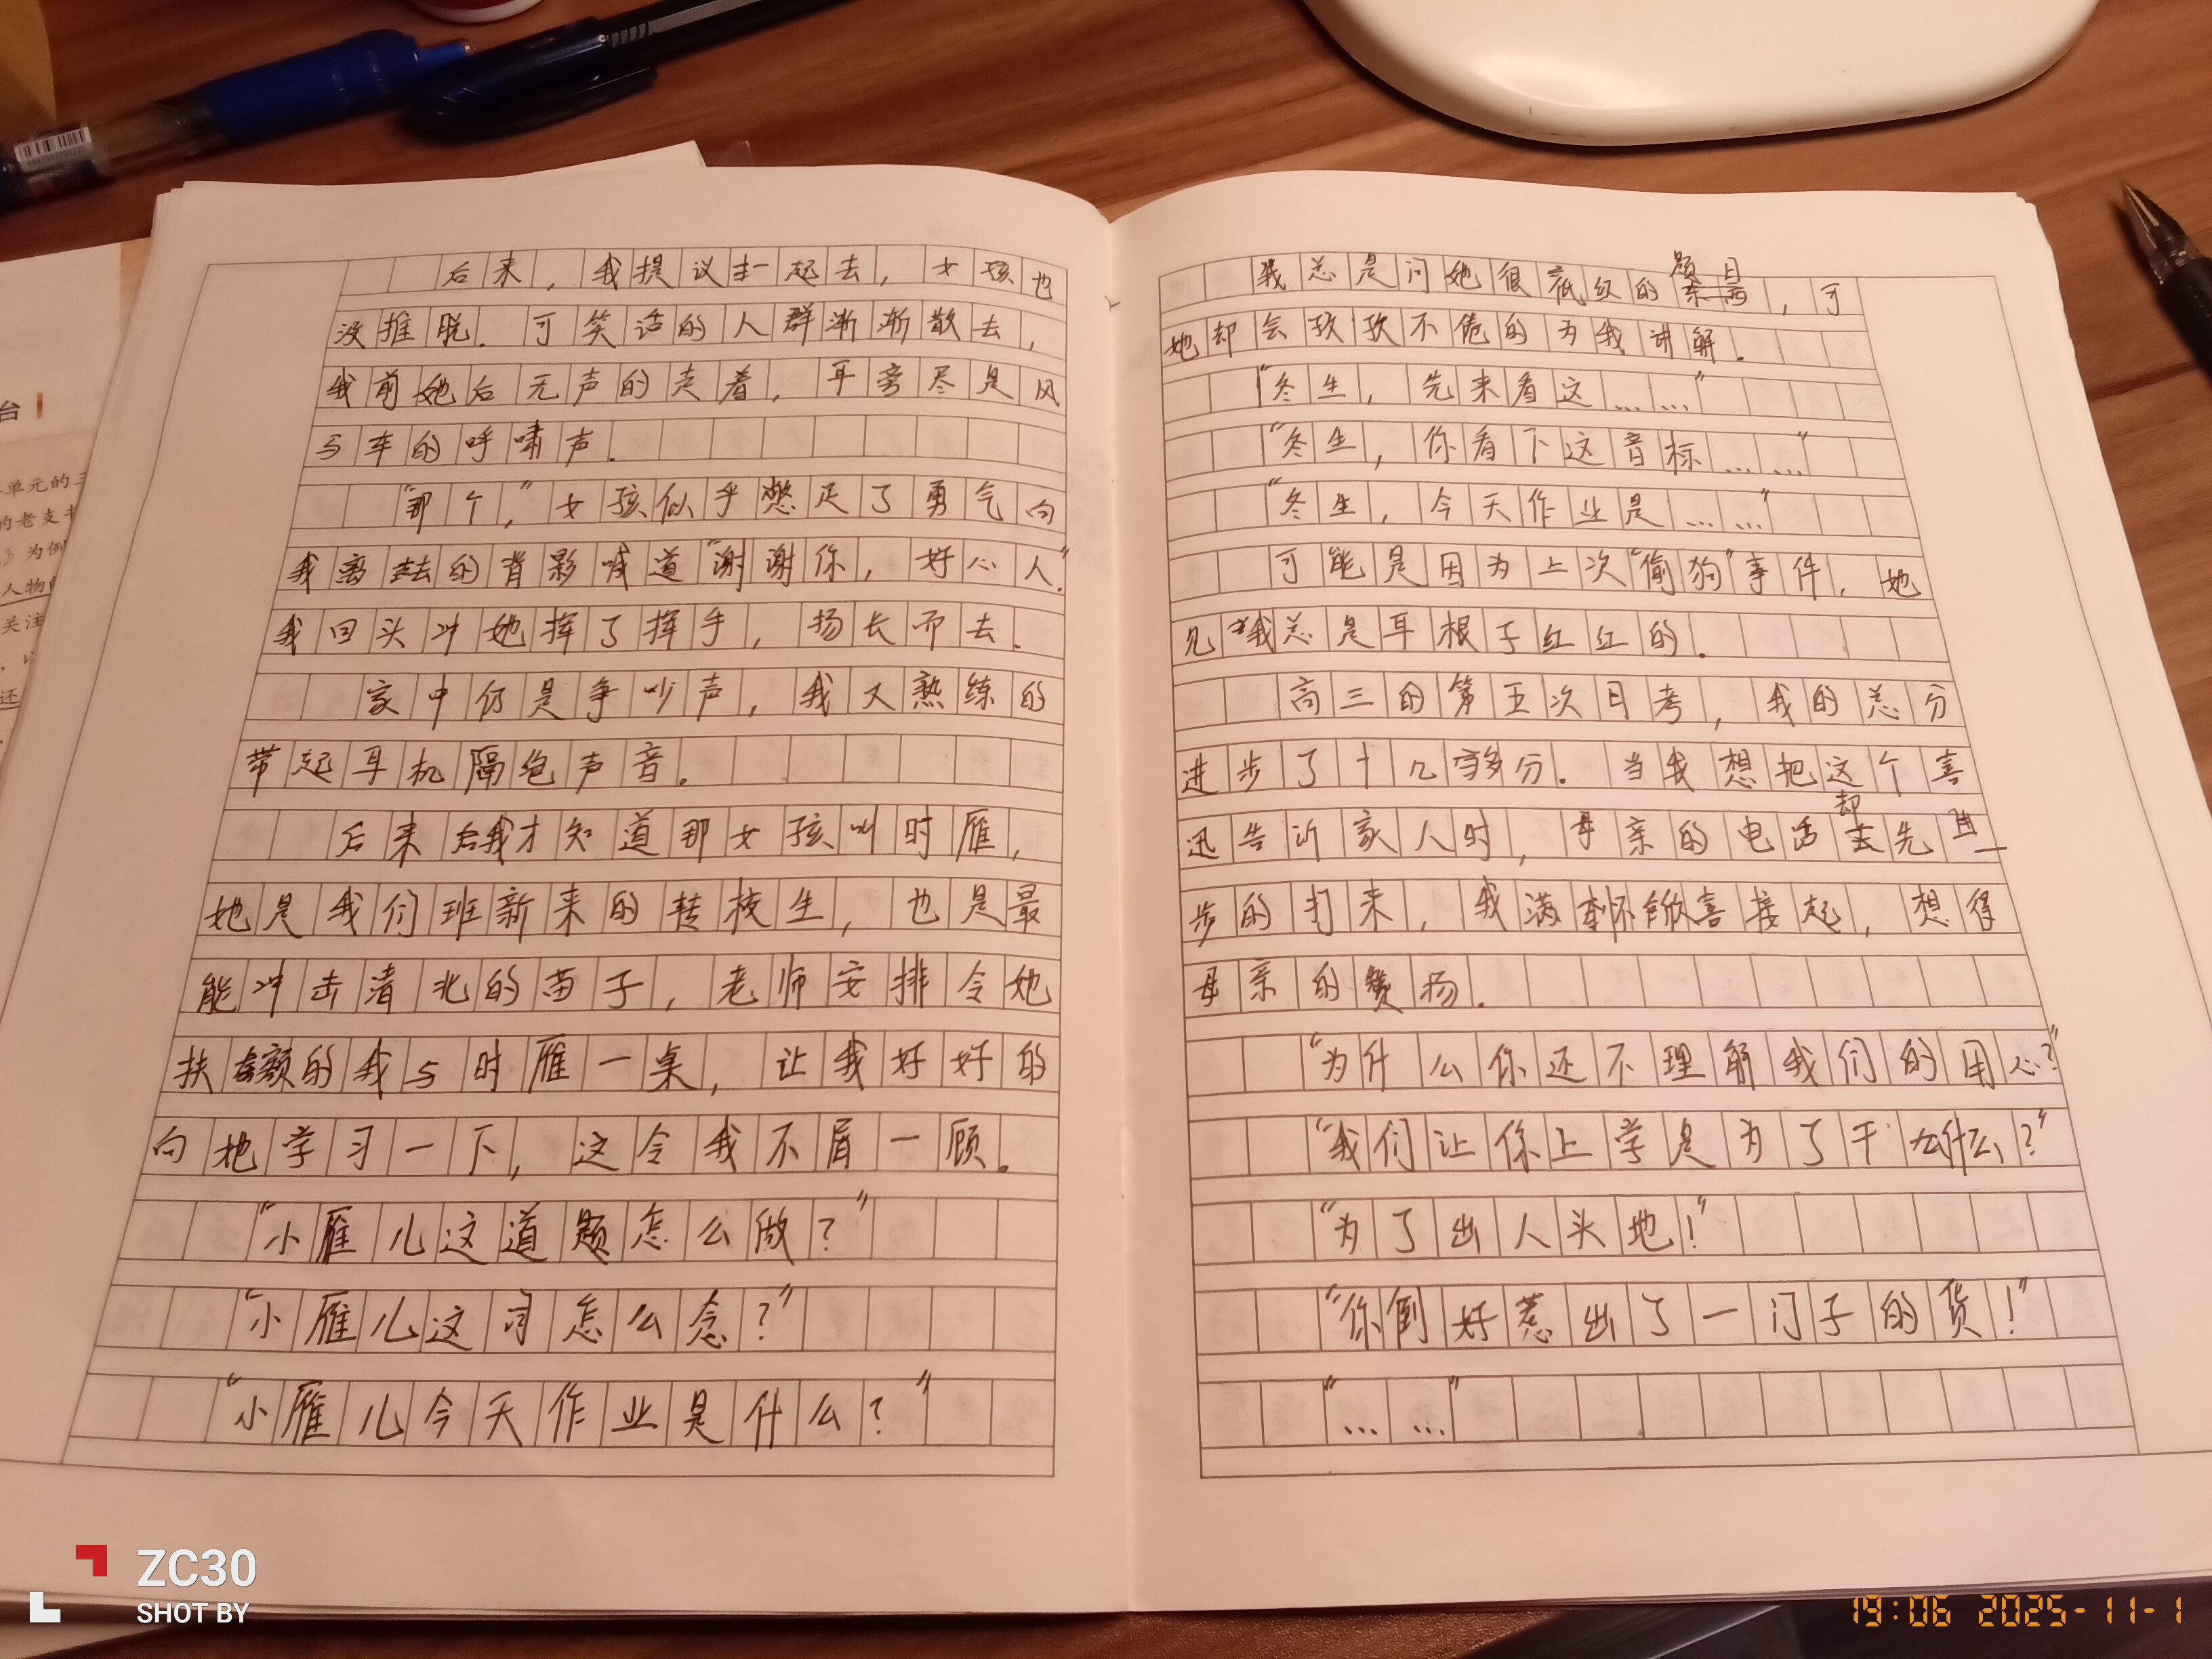 后来，我提议一起去，女孩也
没推脱．可笑话的人群渐渐散去，
我前她后无声的走着，耳旁尽是风
与车的呼啸声．
“那个，”女孩似乎憋足了勇气向
我离去的背影喊道“谢谢你，好心人．”
我回头冲她挥了挥手，扬长而去．
家中仍是争吵声，我又熟练的
带起耳机隔绝声音．
后来我才知道那女孩叫时雁，
她是我们班新来的转校生，也是最
能冲击清北的苗子，老师安排令她
扶额的我与时雁一桌，让我好好的
向她学习一下，这令我不屑一顾．
“小雁儿这道题怎么做？”
“小雁儿这词怎么念？”
“小雁儿今天作业是什么？”
我总是问她很底级的题目，可
她却会孜孜不倦的为我讲解．
“冬生，先来看这……”
“冬生，你看下这音标……”
“冬生，今天作业是……”
可能是因为上次“偷狗”事件，她
见我总是耳根子红红的．
高三的第五次月考，我的总分
进步了十几多分．当我想把这个喜
迅告诉家人时，母亲的电话却先一
步的打来，我满怀欣喜接起，想得
母亲的赞扬．
“为什么你还不理解我们的用心？”
“我们让你上学是为了干什么？”
“为了出人头地！”
“你倒好惹出了一门子的货！”
“……”
台
单元的三
的老支书
》为例
人物
关注
还
ZC30
SHOT BY
19:06 2025-11-1